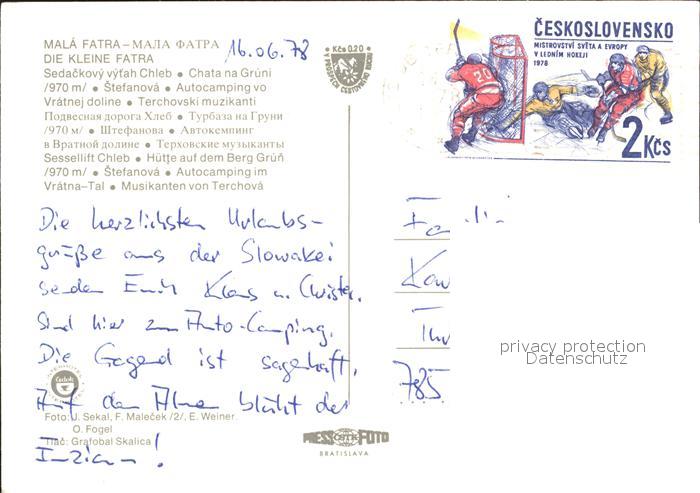 MALÁ FATRA – МАЛА ФАТРА
DIE KLEINE FATRA
16.06.78
Sedačkový výťah Chleb • Chata na Grúni
/970 m/ • Štefanová • Autocamping vo
Vrátnej doline • Terchovskí muzikanti
Подвесная дорога Хлеб • Турбаза на Груни
/970 м/ • Штефанова • Автокемпинг
в Вратной долине • Терховские музыканты
Sessellift Chleb • Hütte auf dem Berg Grúň
/970 m/ • Štefanová • Autocamping im
Vrátna–Tal • Musikanten von Terchová
Kčs 0,20
ČESKOSLOVENSKO
MISTROVSTVÍ SVĚTA A EVROPY
V LEDNÍM HOKEJI
1978
20
2 Kčs
Die herzlichsten Urlaubs-
grüße aus der Slowakei
senden Euch Klaus u. Christer.
Sind hier zum Auto-Camping.
Die Gegend ist sagenhaft.
Auf den Almen blüht der
Enzian!
Fa
785
privacy protection
Datenschutz
Foto: J. Sekal, F. Maleček /2/, E. Weiner.
O. Fogel
Tlač: Grafobal Skalica
PRESS ČSTK FOTO
BRATISLAVA